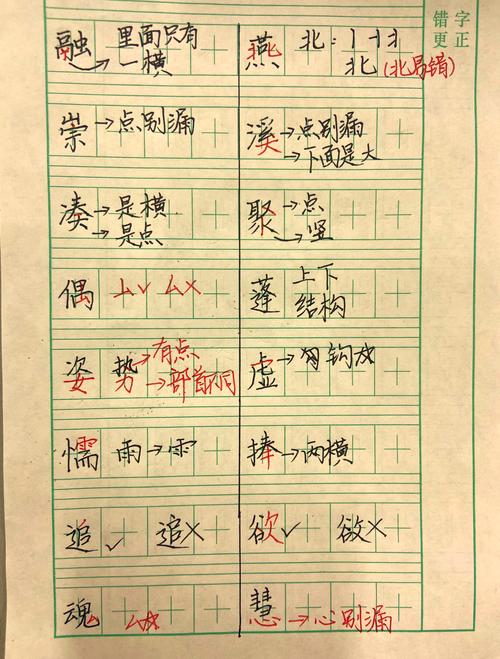 错字
更正
融 里面只有
→一横
燕 北：丨
北（北局错）
崇→点别漏
溪→点别漏
→下面是大
凑→是横
→是点
聚→点
→竖
偶 厶✓ 厶×
蓬 上下
结构
姿 势→有点
→部首不同
虚→钩
懦 雨→
捧→两横
追✓ 追×
欲✓ ×
魂 厶
慧 心→心别漏